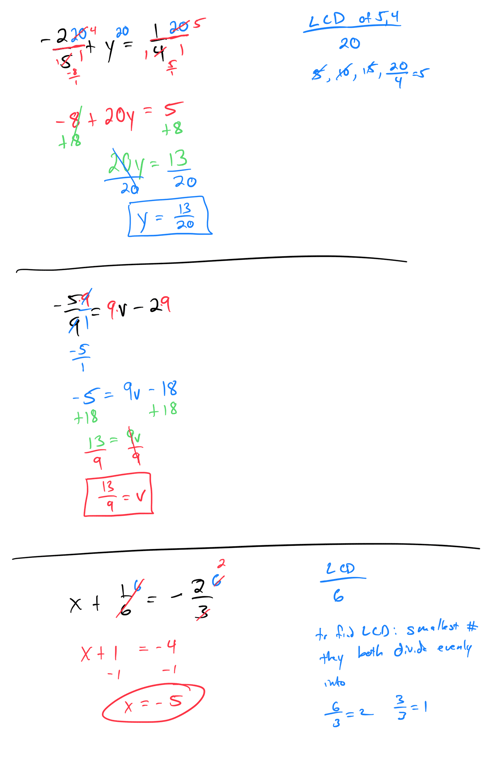 -2/5 20 4 + y 20 = 1/4 20 5
1 1 1 1
-8/1 5/1
-8 + 20y = 5
+8 +8
20y/20 = 13/20
y = 13/20
LCD of 5,4
20
5, 10, 15, 20/4 = 5
-5·9/9 1 = 9·v - 2·9
-5/1
-5 = 9v - 18
+18 +18
13/9 = 9v/9
13/9 = v
x + 1/6 6 = -2/3 6 2
x + 1 = -4
-1 -1
x = -5
LCD
6
to find LCD: smallest #
they both divide evenly
into
6/3 = 2 3/3 = 1